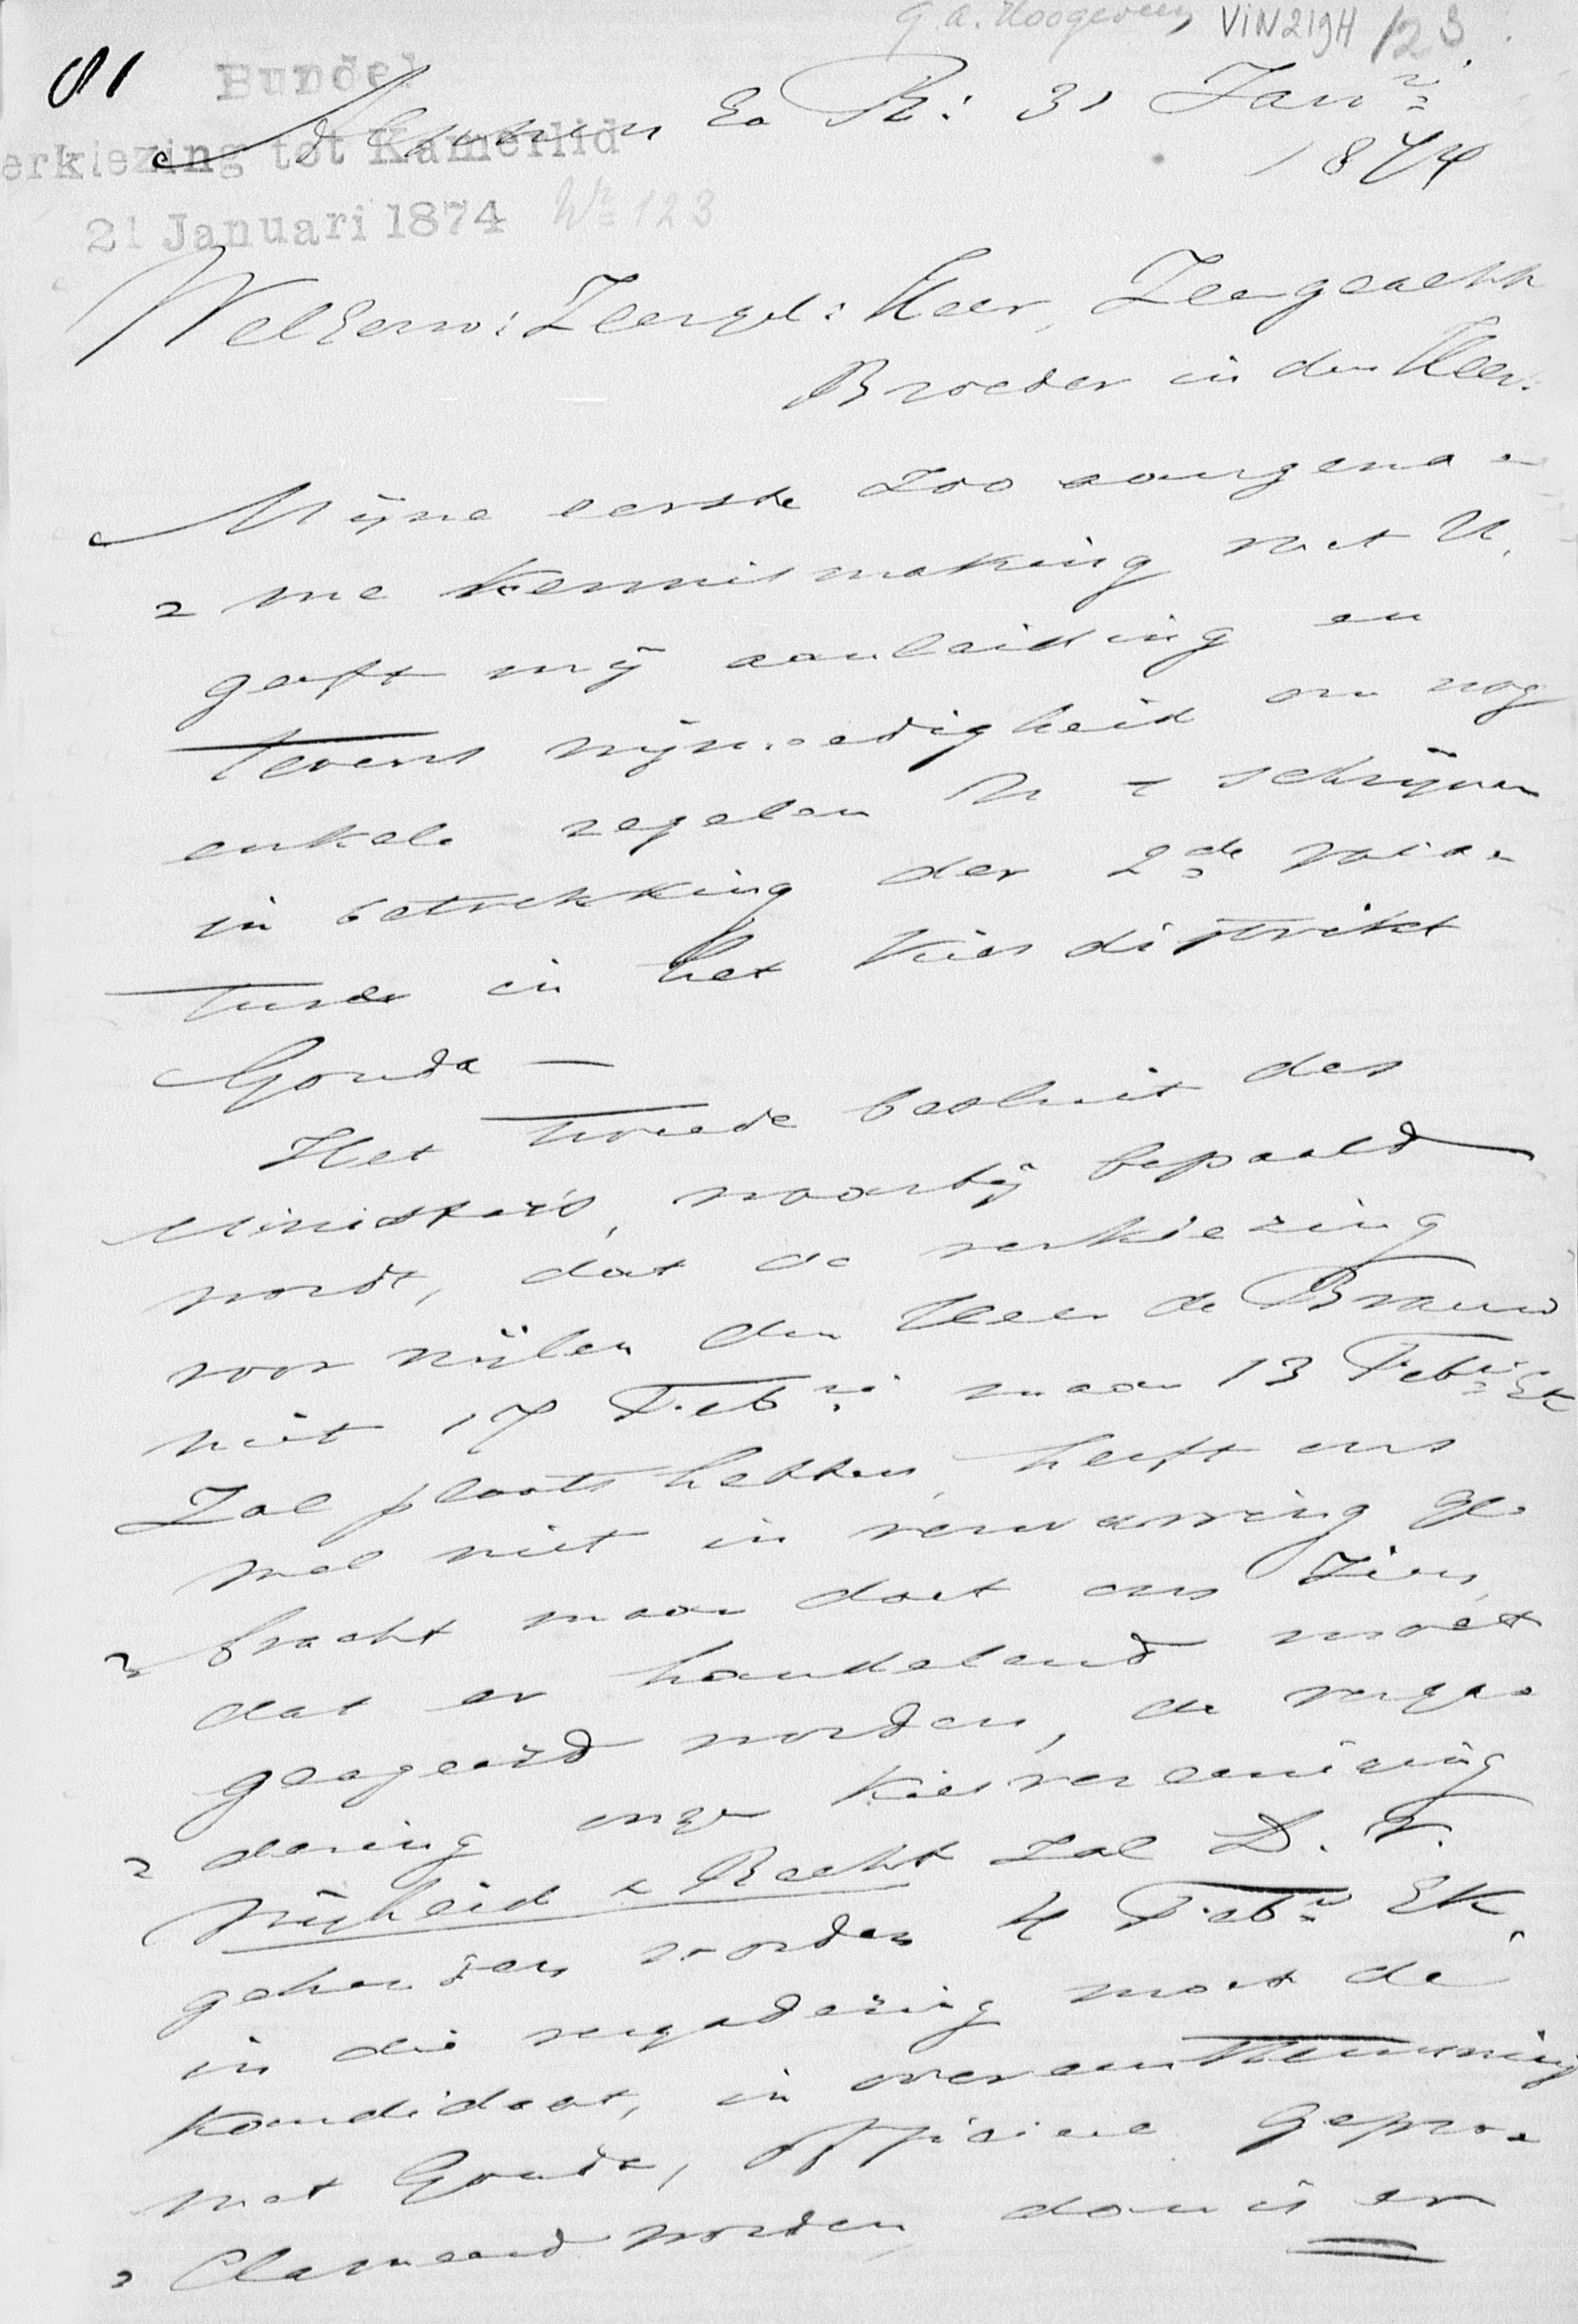 G.A. Hoogeveen VIN219H 123
81 Bundel
Alphen a. R: 31 Janri
erkiezing tot Kamerlid
1874
21 Januari 1874 No 123
WelEerw: Zeergel: Heer, Zeergeachte
Broeder in den Heer.
Mijne eerste zoo aangena=
=me kennismaking met U.
geeft mij aanleiding en
tevens vrijmoedigheid om nog
enkele regelen U te schrijven
in betrekking der 2de vaca=
ture in het Kies distrikt
Gouda —
Het tweede besluit des
Ministers, waarbij bepaald
wordt, dat de verkiezing
voor wijlen den Heer de Brauw
niet 17 Febri maar 13 Febri Ek
zal plaats hebben, heeft ons
wel niet in verwarring ge=
=bracht maar doet ons zien,
dat er handelend moet
geageerd worden, de verga=
=dering onzer Kiesvereeniging
Vrijheid & Recht zal D. V.
gehouden worden 4 Febr Ek.
in die vergadering moet de
Kandidaat, in overeenstemming
met Gouda, officieel gepro=
=clameerd worden, dan is er